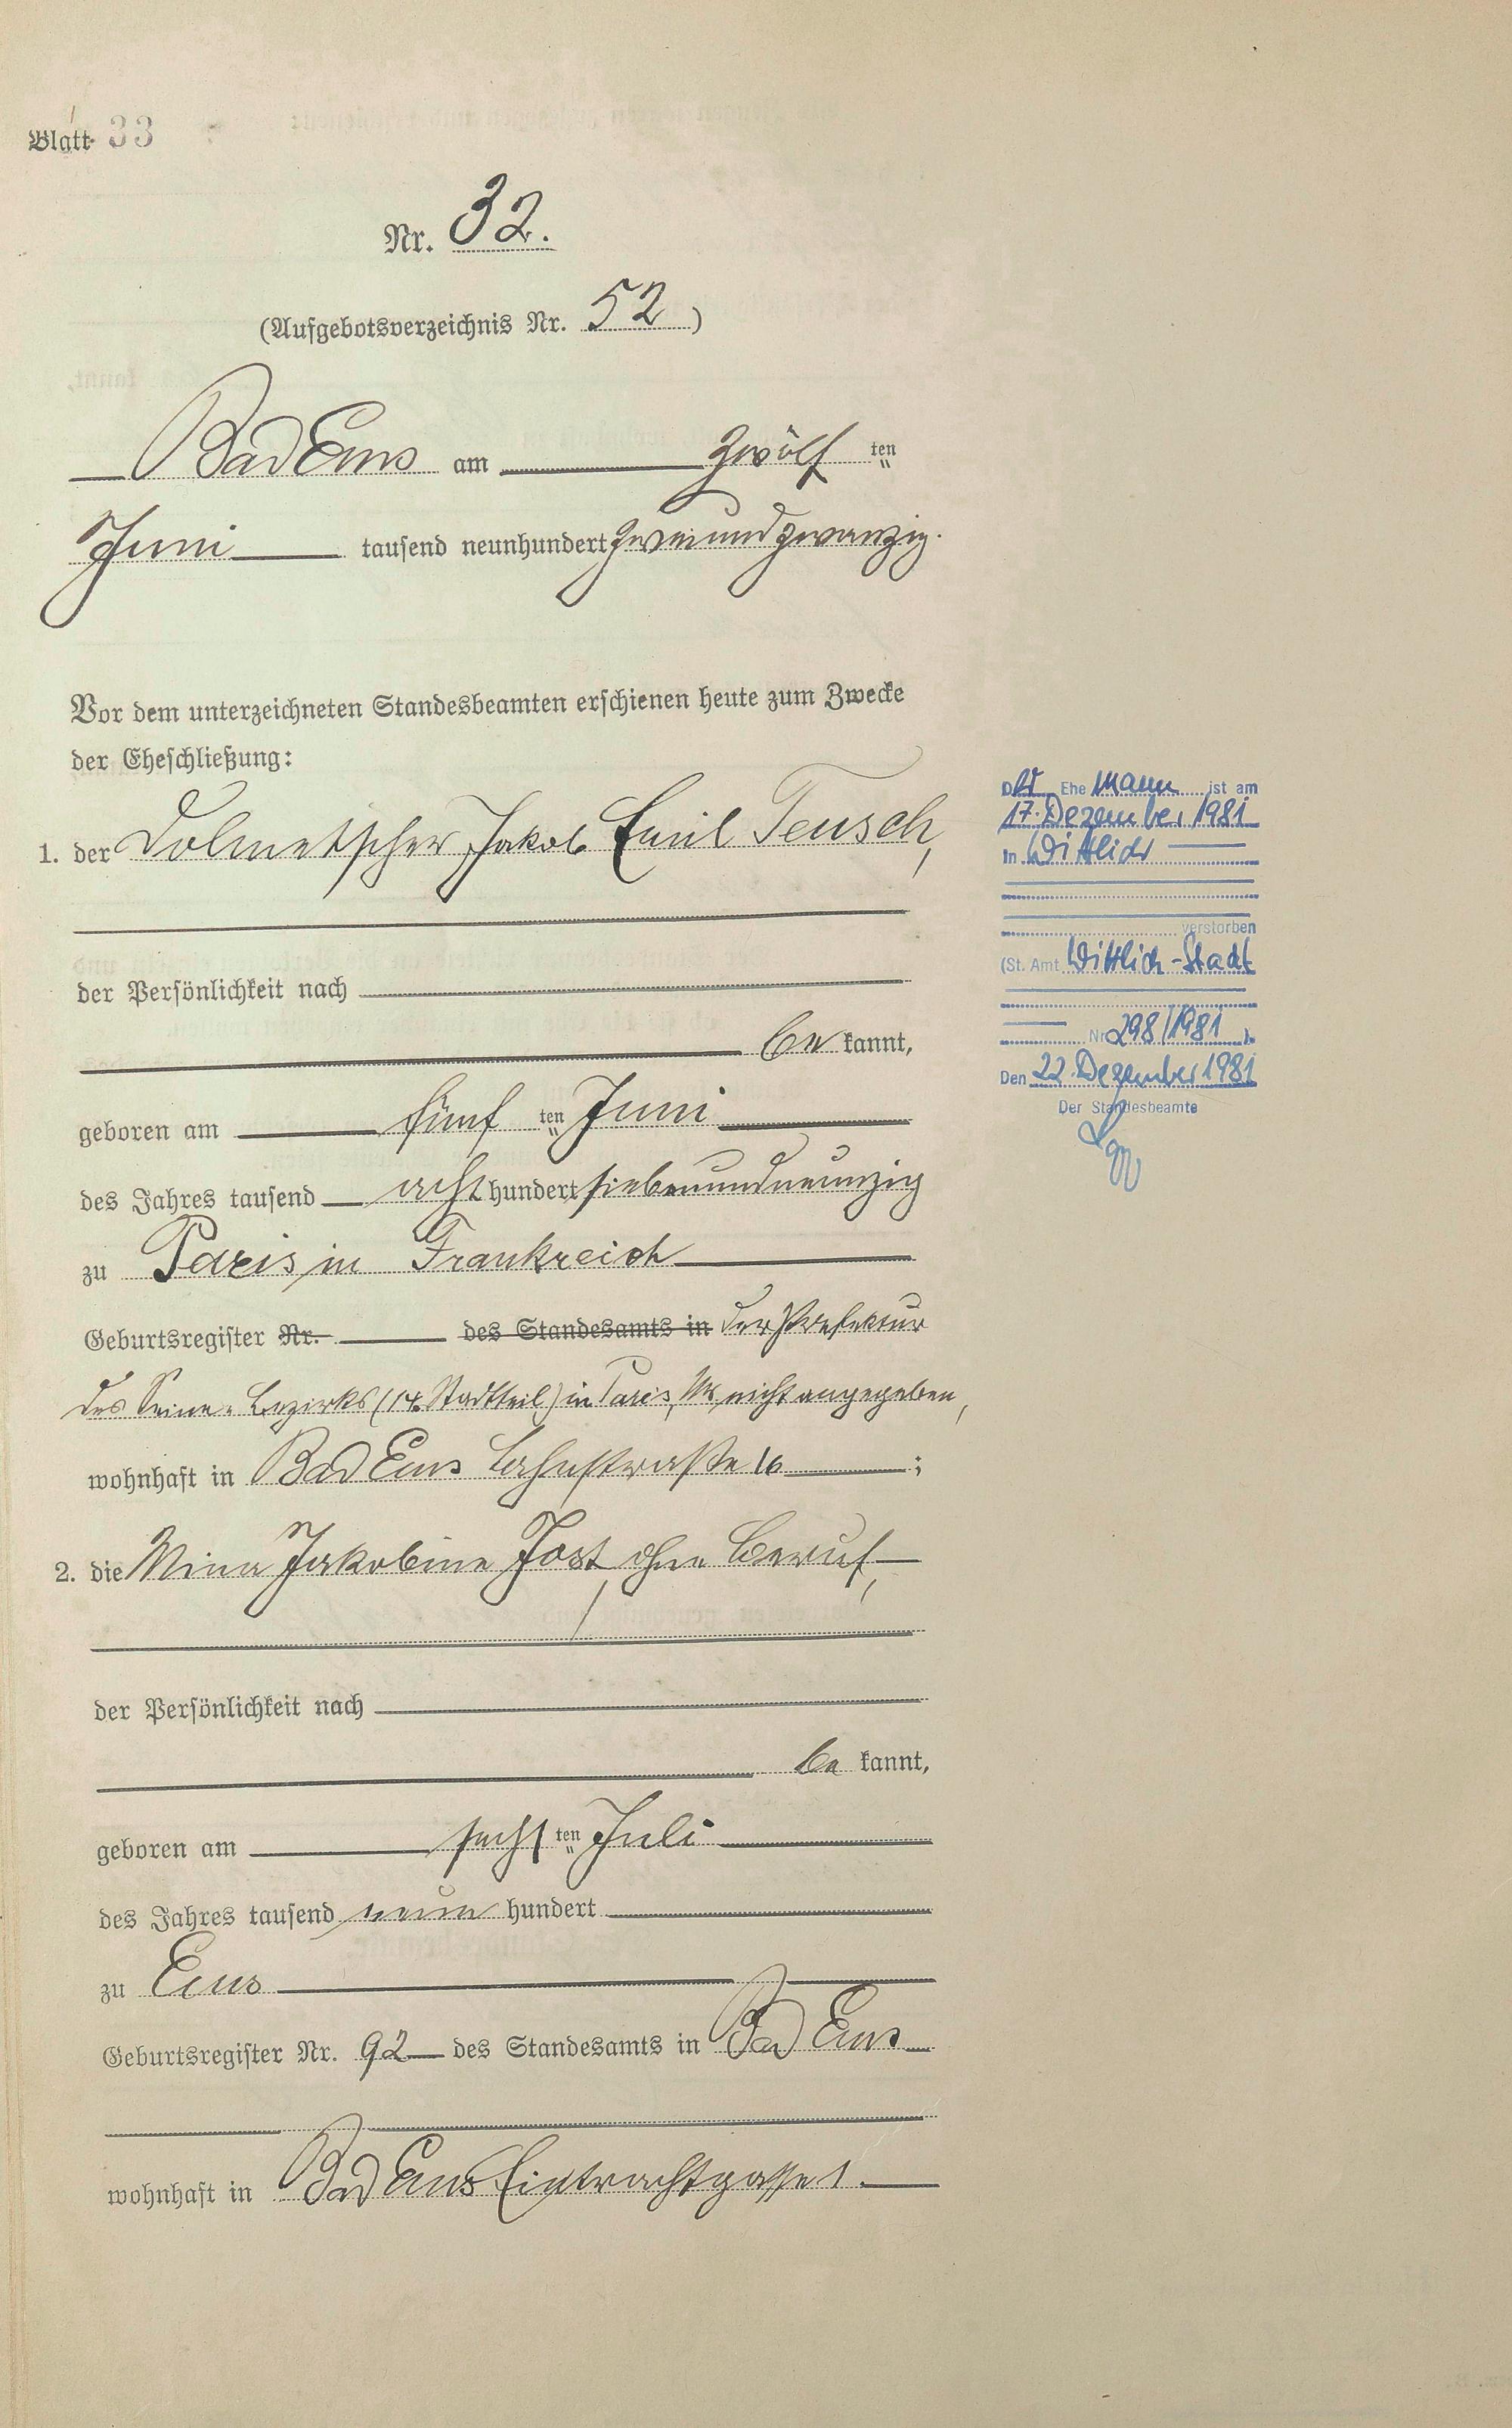 Blatt 33
Nr. 32.
(Aufgebotsverzeichnis Nr. 52)
Bad Ems am zwölf ten
Juni tausend neunhundert zweiundzwanzig.
Vor dem unterzeichneten Standesbeamten erschienen heute zum Zwecke
der Eheschließung:
1. der Dolmetscher Jakob Emil Teusch,
der Persönlichkeit nach
be kannt,
geboren am fünf ten Juni
des Jahres tausend acht hundert siebenundneunzig
zu Paris in Frankreich
Geburtsregister Nr. des Standesamts in der Präfektur
des Seine-Bezirks (14. Stadtteil) in Paris, Nr. nicht angegeben,
wohnhaft in Bad Ems Lahnstraße 16 ;
2. die Mina Jakobine Jost, ohne Beruf,
der Persönlichkeit nach
be kannt,
geboren am sechs ten Juli
des Jahres tausend neun hundert
zu Ems
Geburtsregister Nr. 92 des Standesamts in Bad Ems
wohnhaft in Bad Ems Eintrachtgasse 1.
Der Ehe Mann ist am
17. Dezember 1981
in Wittlich
verstorben
(St. Amt Wittlich-Stadt
Nr. 298/1981 ).
Den 22. Dezember 1981
Der Standesbeamte